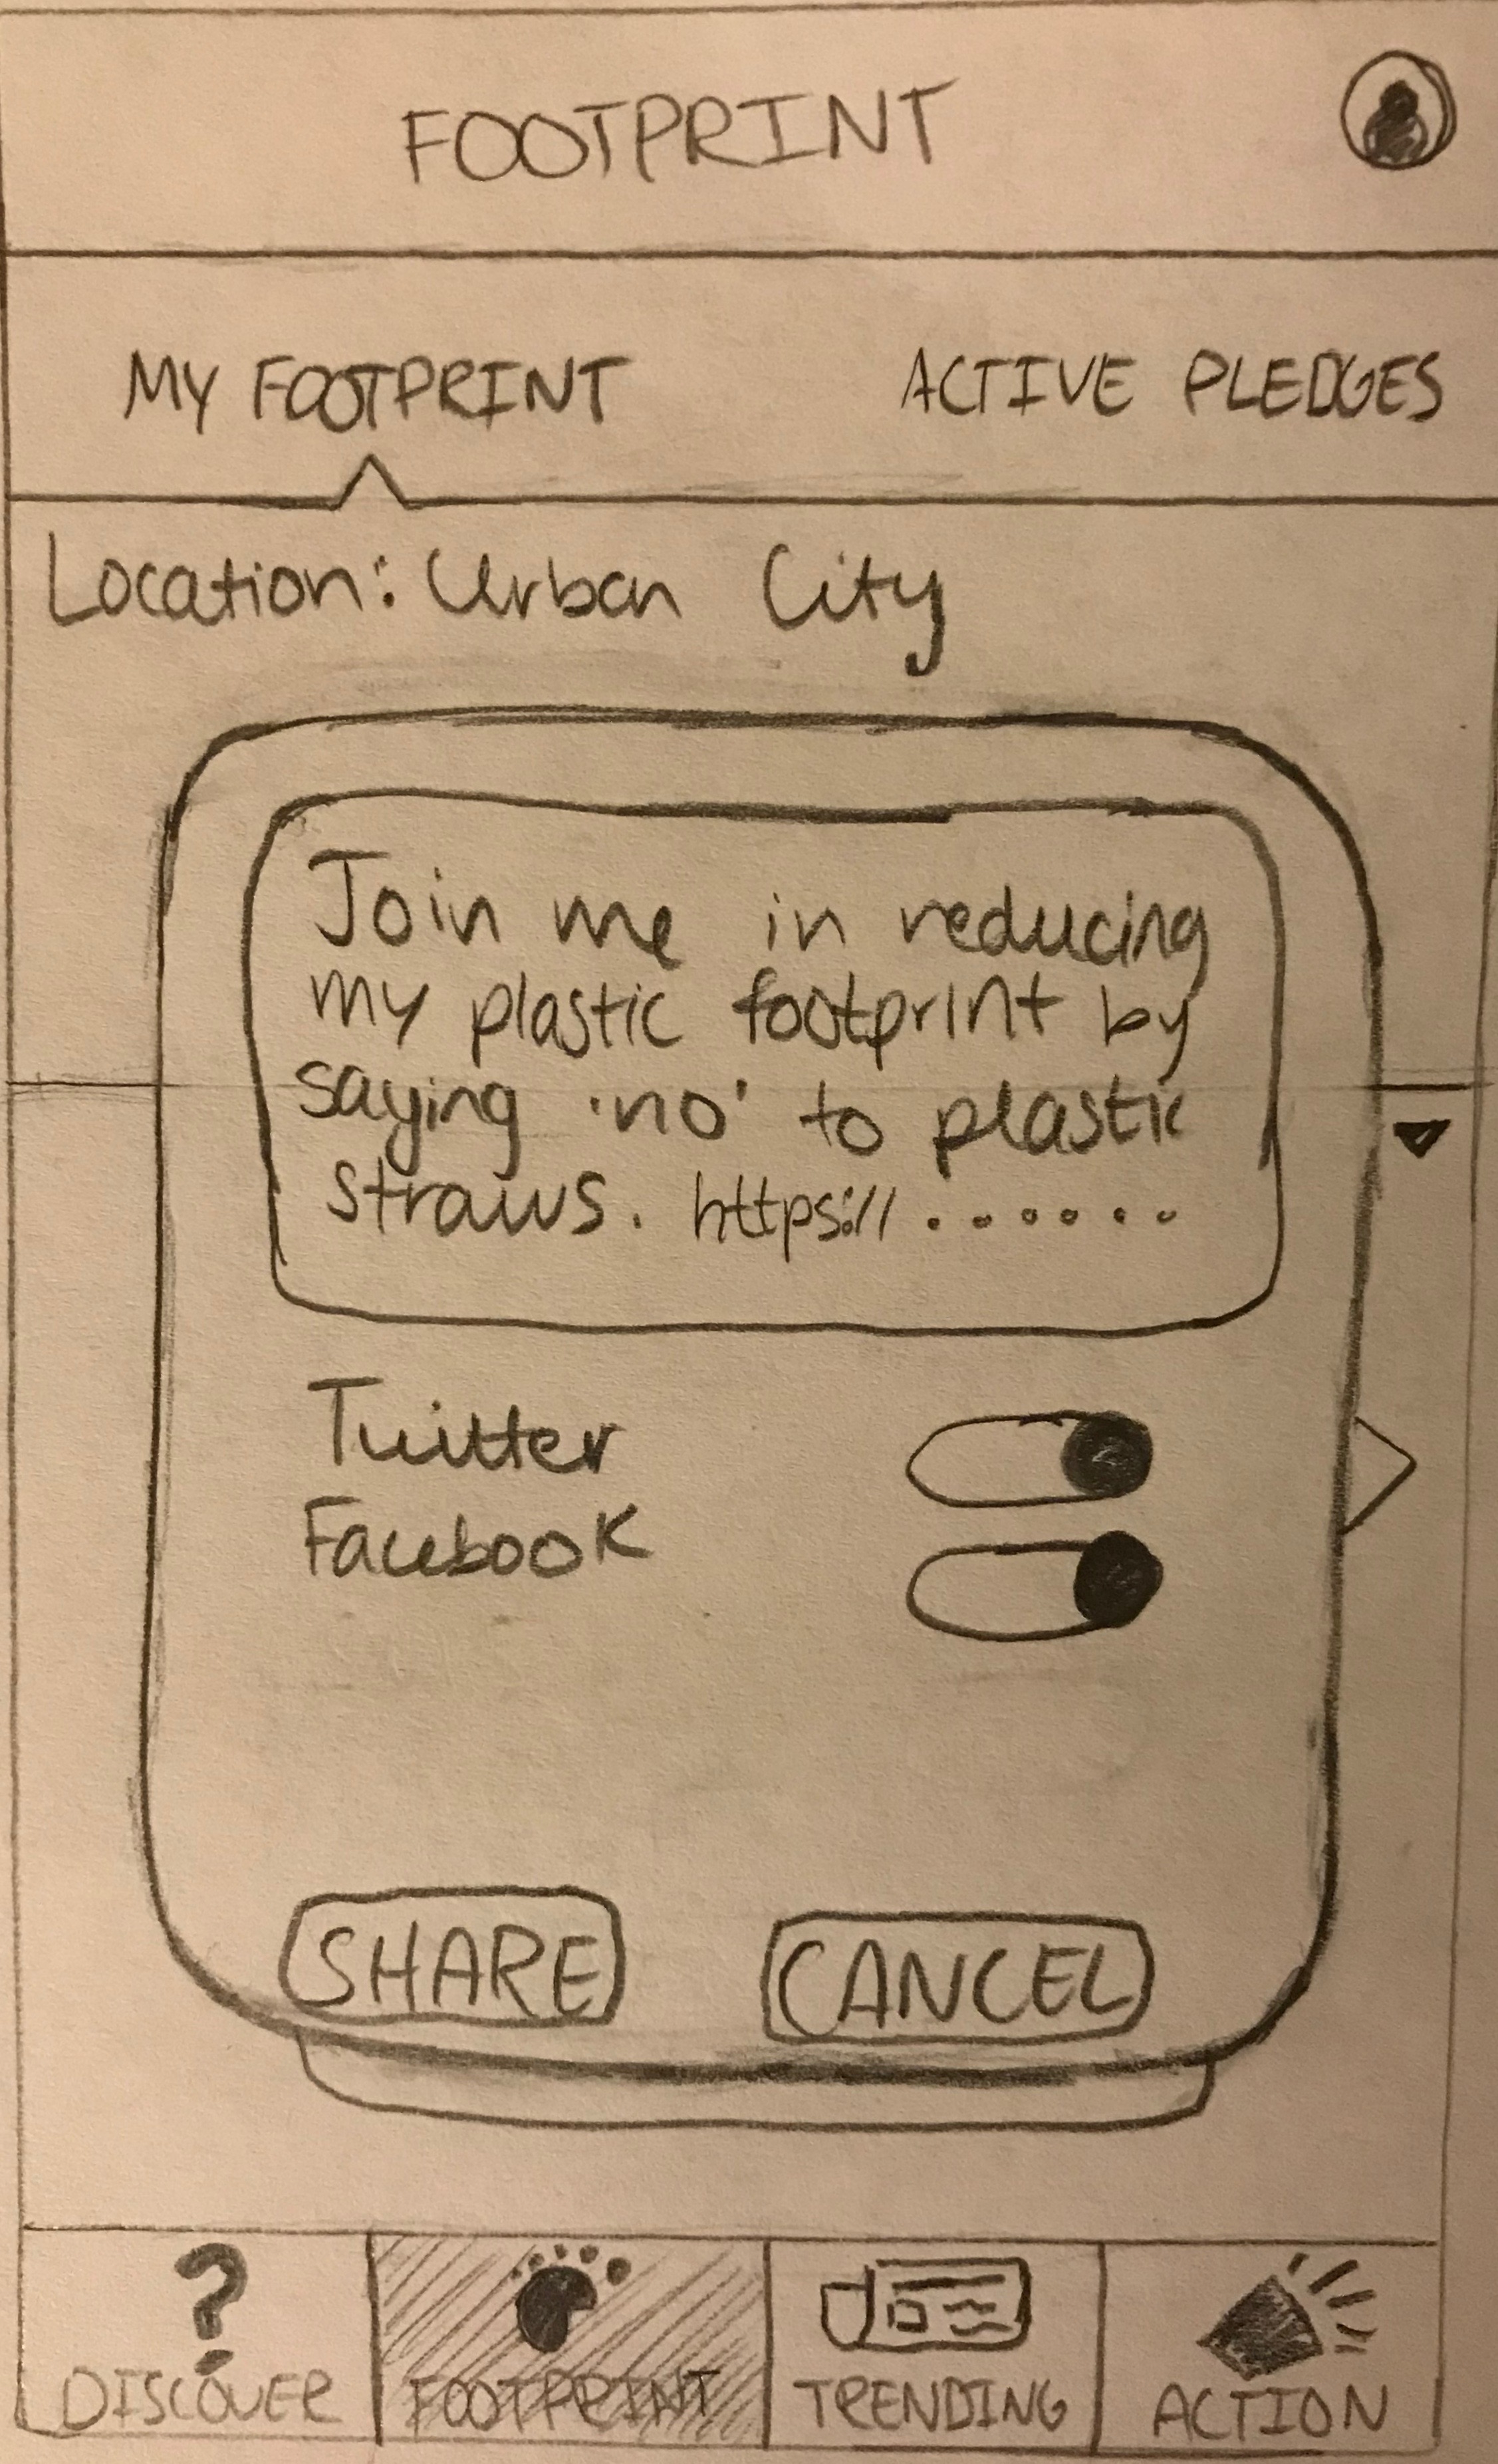 FOOTPRINT
MY FOOTPRINT ACTIVE PLEDGES
Location: Urban City
Join me in reducing
my plastic footprint by
saying 'no' to plastic
straws. https://.......
Twitter
Facebook
SHARE CANCEL
?
DISCOVER FOOTPRINT TRENDING ACTION